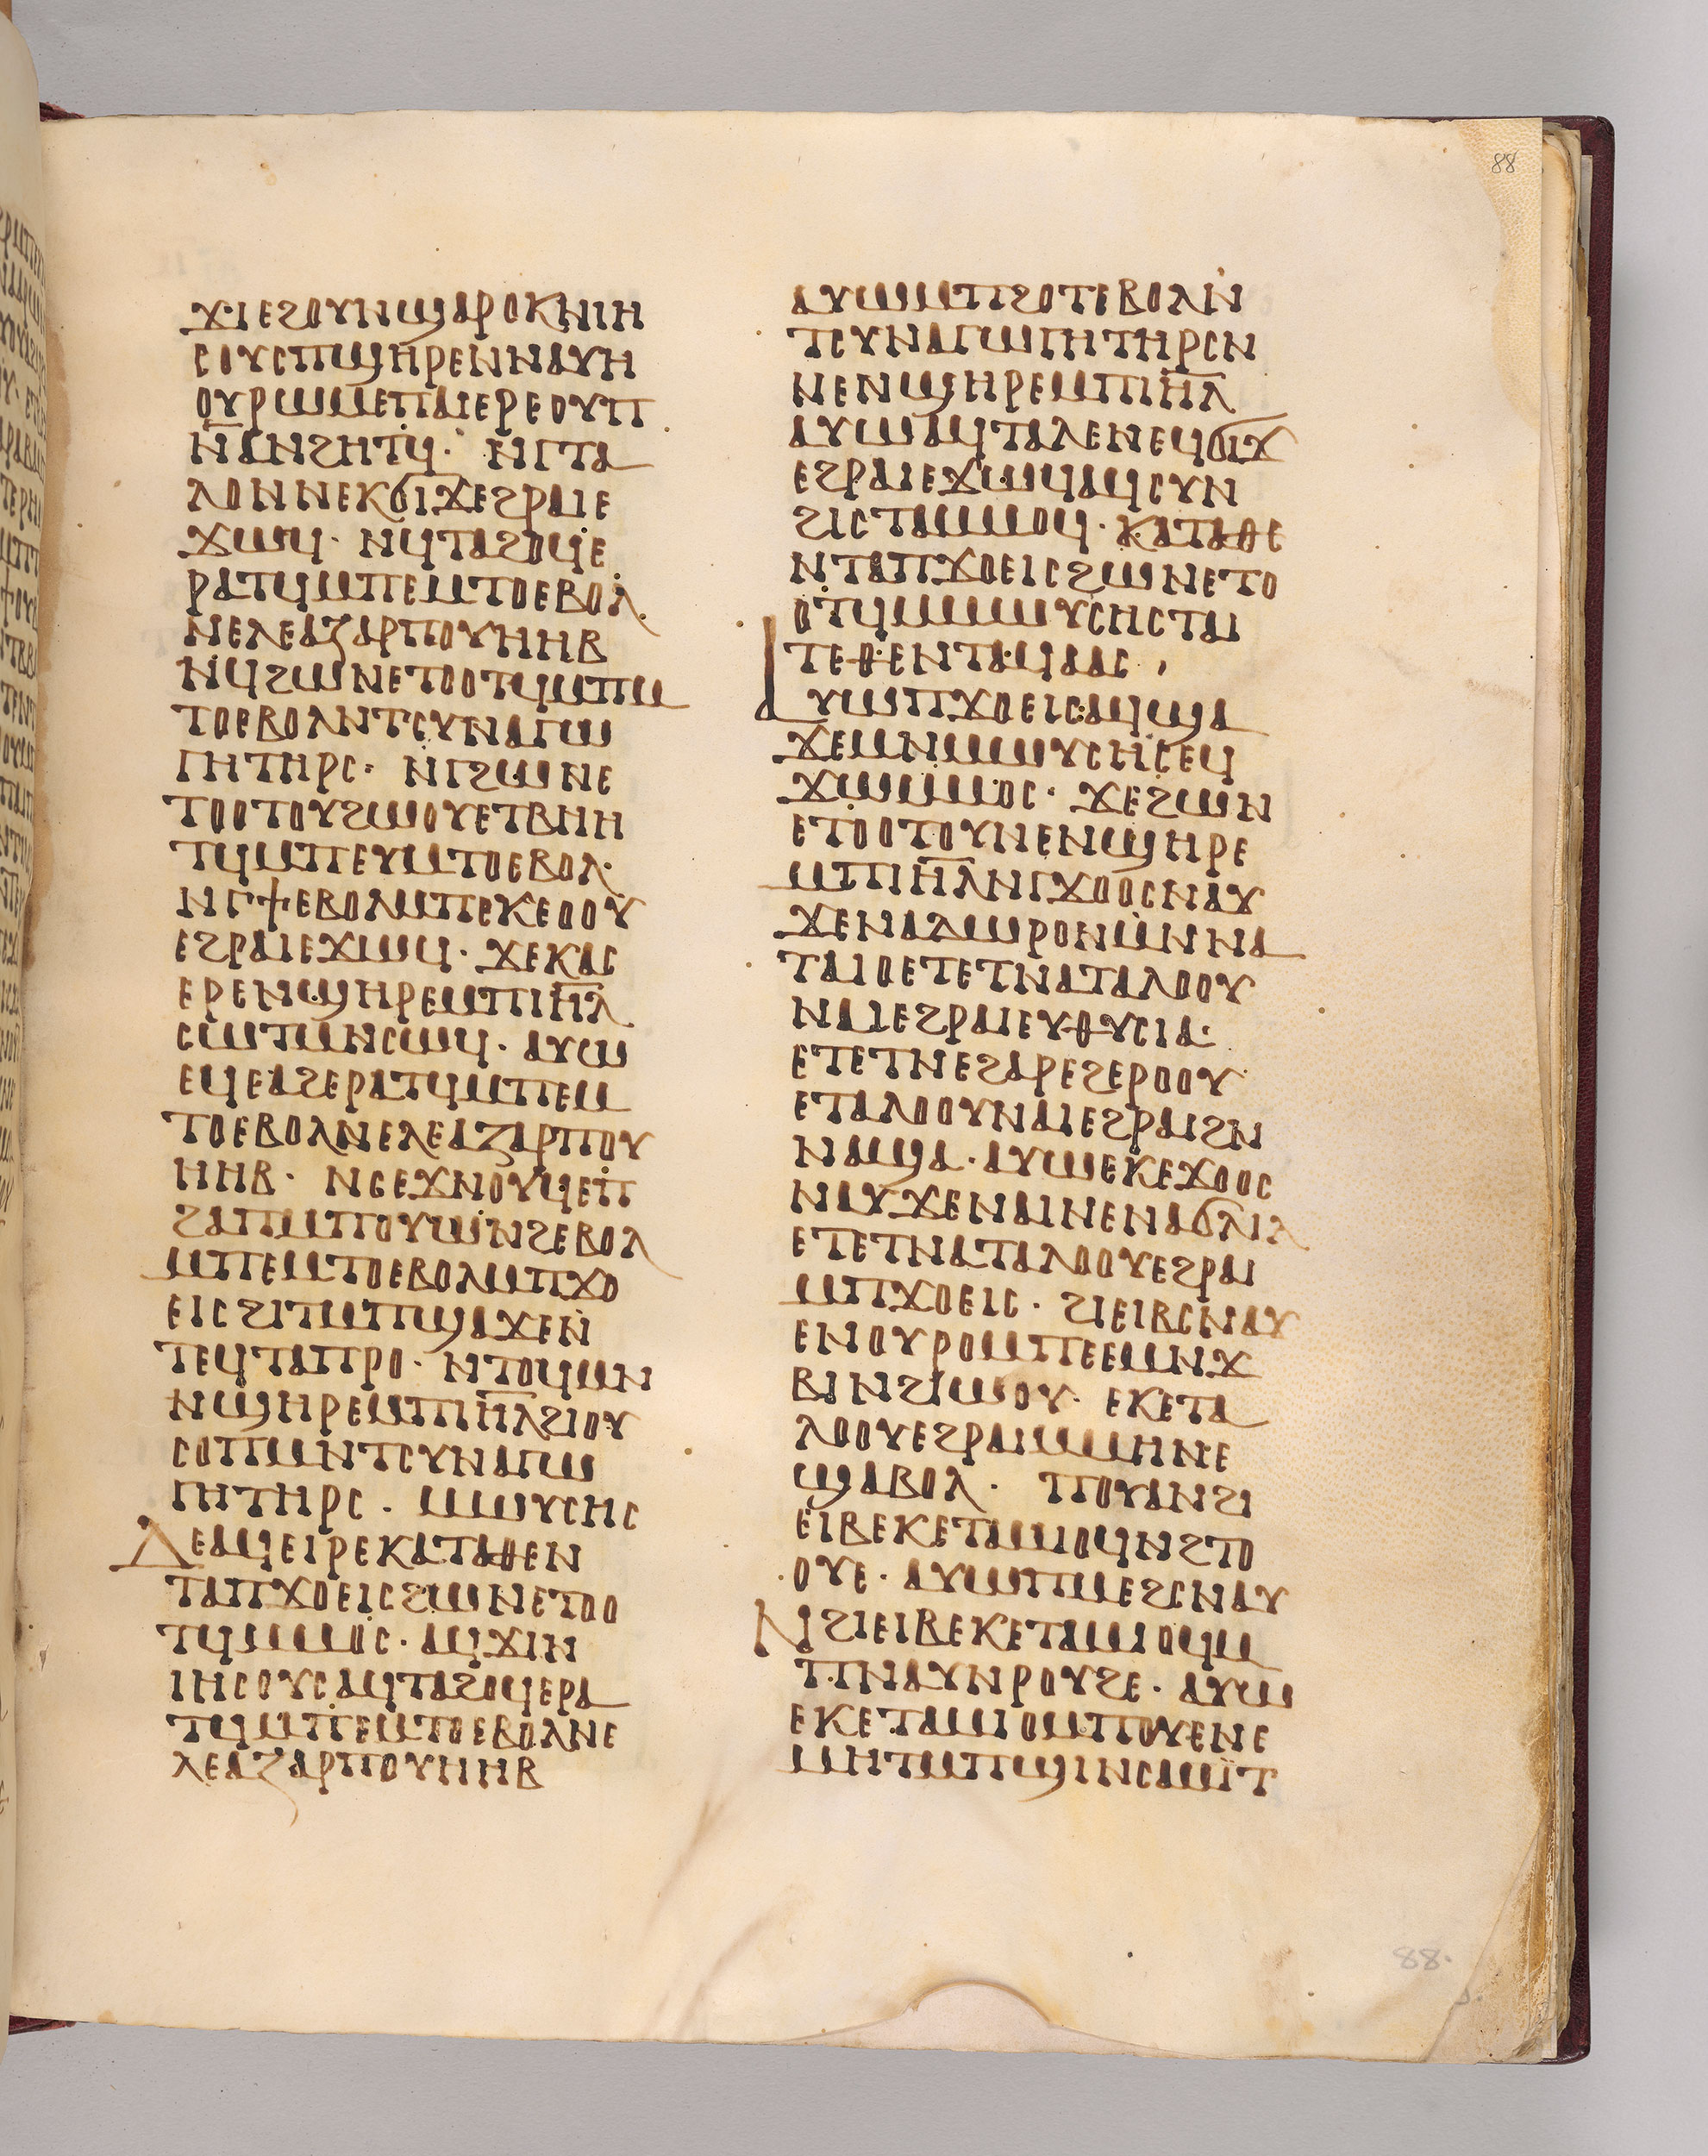 88
ϫⲓⲉϩⲟⲩⲛϣⲁⲣⲟⲕⲛⲓⲏ
ⲥⲟⲩⲥⲡϣⲏⲣⲉⲛⲛⲁⲩⲏ
ⲟⲩⲣⲱⲙⲉⲡⲁⲓⲉⲣⲉⲟⲩⲡ
ⲛ̅ⲁⲛϩⲏⲧϥ· ⲉⲛⲅⲧⲁ
ⲗⲟⲛⲛⲉⲕϭⲓϫⲉϩⲣⲁⲓⲉ
ϫⲱϥ· ⲛϥⲧⲁϩⲟϥⲉ
ⲣⲁⲧϥⲙⲡⲉⲙⲧⲟⲉⲃⲟⲗ
ⲛⲉⲗⲉⲁⲍⲁⲣⲡⲟⲩⲏⲏⲃ
ⲛϥϩⲱⲛⲉⲧⲟⲟⲧϥⲙⲡⲙ
ⲧⲟⲉⲃⲟⲗⲛⲧⲥⲩⲛⲁⲅⲱ
ⲅⲏⲧⲏⲣⲥ· ⲛⲅϩⲱⲛⲉ
ⲧⲟⲟⲧⲟⲩϩⲱⲟⲩⲉⲧⲃⲏⲏ
ⲧϥⲙⲡⲉⲩⲙⲧⲟⲉⲃⲟⲗ·
ⲛⲅϯⲉⲃⲟⲗⲙⲡⲉⲕⲉⲟⲟⲩ
ⲉϩⲣⲁⲓⲉϫⲱϥ· ϫⲉⲕⲁⲥ
ⲉⲣⲉⲛϣⲏⲣⲉⲙⲡⲓⲏ̅ⲗ
ⲥⲱⲧⲙⲛⲥⲱϥ· ⲁⲩⲱ
ⲉϥⲉⲁϩⲉⲣⲁⲧϥⲙⲡⲉⲙ
ⲧⲟⲉⲃⲟⲗⲛⲉⲗⲉⲁⲍⲁⲣⲡⲟⲩ
ⲏⲏⲃ· ⲛⲥⲉϫⲛⲟⲩϥⲉⲡ
ϩⲁⲡⲙⲡⲟⲩⲱⲛϩⲉⲃⲟⲗ
ⲙⲡⲉⲙⲧⲟⲉⲃⲟⲗⲙⲡϫⲟ
ⲉⲓⲥϩⲓⲧⲙⲡϣⲁϫⲉⲛ
ⲧⲉϥⲧⲁⲡⲣⲟ· ⲛⲧⲟϥⲙⲛ
ⲛϣⲏⲣⲉⲙⲡⲓⲏ̅ⲗϩⲓⲟⲩ
ⲥⲟⲡⲙⲛⲧⲥⲩⲛⲁⲅⲱ
ⲅⲏⲧⲏⲣⲥ· ⲙⲱⲩⲥⲏⲥ
ⲇⲉⲁϥⲉⲓⲣⲉⲕⲁⲧⲁⲑⲉⲛ
ⲧⲁⲡϫⲟⲉⲓⲥϩⲱⲛⲉⲧⲟⲟ
ⲧϥⲙⲙⲟⲥ· ⲁϥϫⲓⲛ
ⲓⲏⲥⲟⲩⲥⲁϥⲧⲁϩⲟϥⲉⲣⲁ
ⲧϥⲙⲡⲉⲙⲧⲟⲉⲃⲟⲗⲛⲉ
ⲗⲉⲁⲍⲁⲣⲡⲟⲩⲏⲏⲃ
ⲁⲩⲱⲙⲡϩⲟⲧⲉⲃⲟⲗⲛ
ⲧⲥⲩⲛⲁⲅⲱⲅⲏⲧⲏⲣⲥⲛ
ⲛⲉⲛϣⲏⲣⲉⲙⲡⲓⲏ̅ⲗ
ⲁⲩⲱⲁϥⲧⲁⲗⲉⲛⲉϥϭⲓϫ
ⲉϩⲣⲁⲓⲉϫⲱϥⲁϥⲥⲩⲛ
ϩⲓⲥⲧⲁⲙⲙⲟϥ· ⲕⲁⲧⲁⲑⲉ
ⲛⲧⲁⲡϫⲟⲉⲓⲥϩⲱⲛⲉⲧⲟ
ⲟⲧϥⲙⲙⲱⲩⲥⲏⲥⲧⲁⲓ
ⲧⲉⲑⲉⲛⲧⲁϥⲁⲁⲥ·
ⲁⲩⲱⲡϫⲟⲉⲓⲥⲁϥϣⲁ
ϫⲉⲙⲛⲙⲱⲩⲥⲏⲥⲉϥ
ϫⲱⲙⲙⲟⲥ· ϫⲉϩⲱⲛ
ⲉⲧⲟⲟⲧⲟⲩⲛⲉⲛϣⲏⲣⲉ
ⲙⲡⲓⲏ̅ⲗⲛⲅϫⲟⲟⲥⲛⲁⲩ
ϫⲉⲛⲁⲇⲱⲣⲟⲛⲙⲛⲛⲁ
ⲧⲁⲓⲟⲉⲧⲉⲧⲛⲁⲧⲁⲗⲟⲟⲩ
ⲛⲁⲓⲉϩⲣⲁⲓⲉⲩⲑⲩⲥⲓⲁ·
ⲉⲧⲉⲧⲛⲉϩⲁⲣⲉϩⲉⲣⲟⲟⲩ
ⲉⲧⲁⲗⲟⲟⲩⲛⲁⲓⲉϩⲣⲁⲓϩⲛ
ⲛⲁϣⲁ· ⲁⲩⲱⲉⲕⲉϫⲟⲟⲥ
ⲛⲁⲩϫⲉⲛⲁⲓⲛⲉⲛⲁϭⲗⲓⲗ
ⲉⲧⲉⲧⲛⲁⲧⲁⲗⲟⲟⲩⲉϩⲣⲁⲓ
ⲙⲡϫⲟⲉⲓⲥ· ϩⲓⲉⲓⲃⲥⲛⲁⲩ
ⲉⲛⲟⲩⲣⲟⲙⲡⲉⲉⲙⲛϫ
ⲃⲓⲛϩⲓⲱⲟⲩ· ⲉⲕⲉⲧⲁ
ⲗⲟⲟⲩⲉϩⲣⲁⲓⲙⲙⲏⲛⲉ
ϣⲁⲃⲟⲗ· ⲡⲟⲩⲁⲛϩⲓ
ⲉⲓⲃⲉⲕⲉⲧⲁⲙⲓⲟϥⲛϩⲧⲟ
ⲟⲩⲉ· ⲁⲩⲱⲡⲙⲉϩⲥⲛⲁⲩ
ⲛϩⲓⲉⲓⲃⲉⲕⲉⲧⲁⲙⲓⲟϥⲙ
ⲡⲛⲁⲩⲛⲣⲟⲩϩⲉ· ⲁⲩⲱ
ⲉⲕⲉⲧⲁⲙⲓⲟⲙⲡⲟⲩⲉⲛⲉ
ⲙⲏⲧⲙⲡϣⲓⲛⲥⲁⲙⲓⲧ
88.